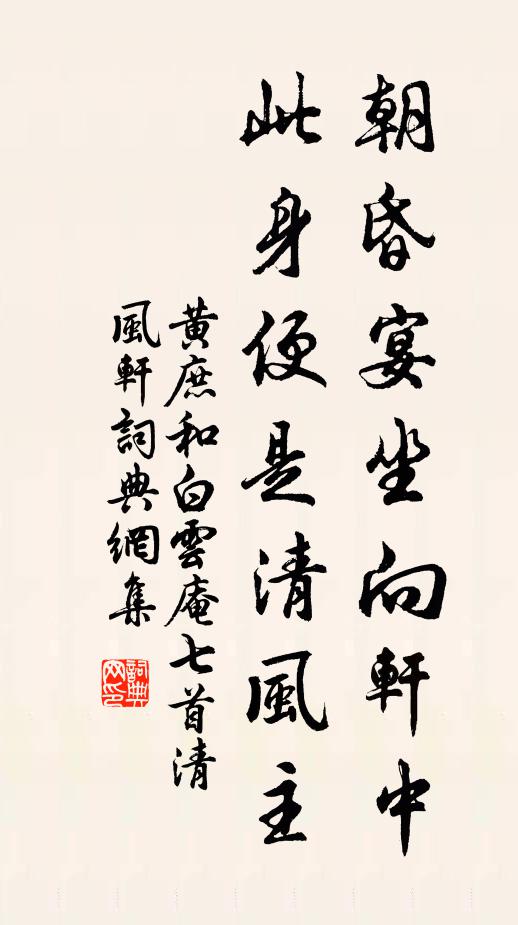 朝昏宴坐向軒中
此身便是清風主
黃庶和白雲庵七首清
風軒詞典網集
詞典
网印